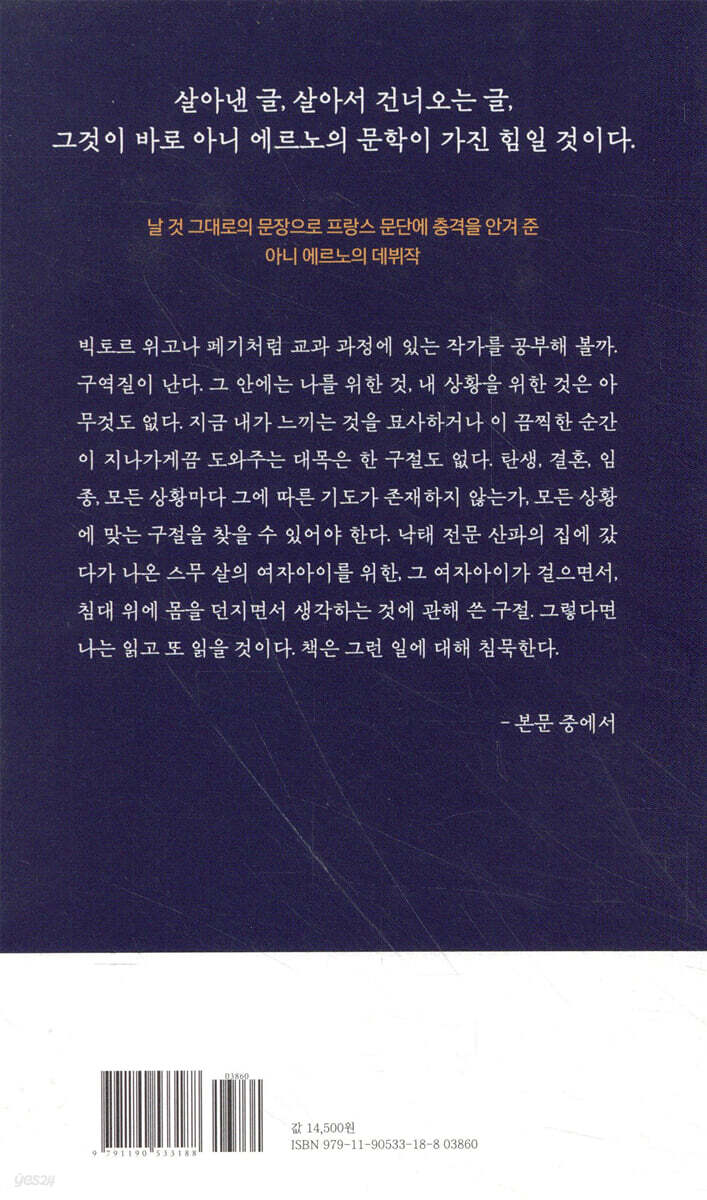 살아낸 글, 살아서 건너오는 글,
그것이 바로 아니 에르노의 문학이 가진 힘일 것이다.
날 것 그대로의 문장으로 프랑스 문단에 충격을 안겨 준
아니 에르노의 데뷔작
빅토르 위고나 페기처럼 교과 과정에 있는 작가를 공부해 볼까.
구역질이 난다. 그 안에는 나를 위한 것, 내 상황을 위한 것은 아
무것도 없다. 지금 내가 느끼는 것을 묘사하거나 이 끔찍한 순간
이 지나가게끔 도와주는 대목은 한 구절도 없다. 탄생, 결혼, 임
종, 모든 상황마다 그에 따른 기도가 존재하지 않는가, 모든 상황
에 맞는 구절을 찾을 수 있어야 한다. 낙태 전문 산파의 집에 갔
다가 나온 스무 살의 여자아이를 위한, 그 여자아이가 걸으면서,
침대 위에 몸을 던지면서 생각하는 것에 관해 쓴 구절. 그렇다면
나는 읽고 또 읽을 것이다. 책은 그런 일에 대해 침묵한다.
– 본문 중에서
03860
9 791190 533188
값 14,500원
ISBN 979-11-90533-18-8 03860
yes24